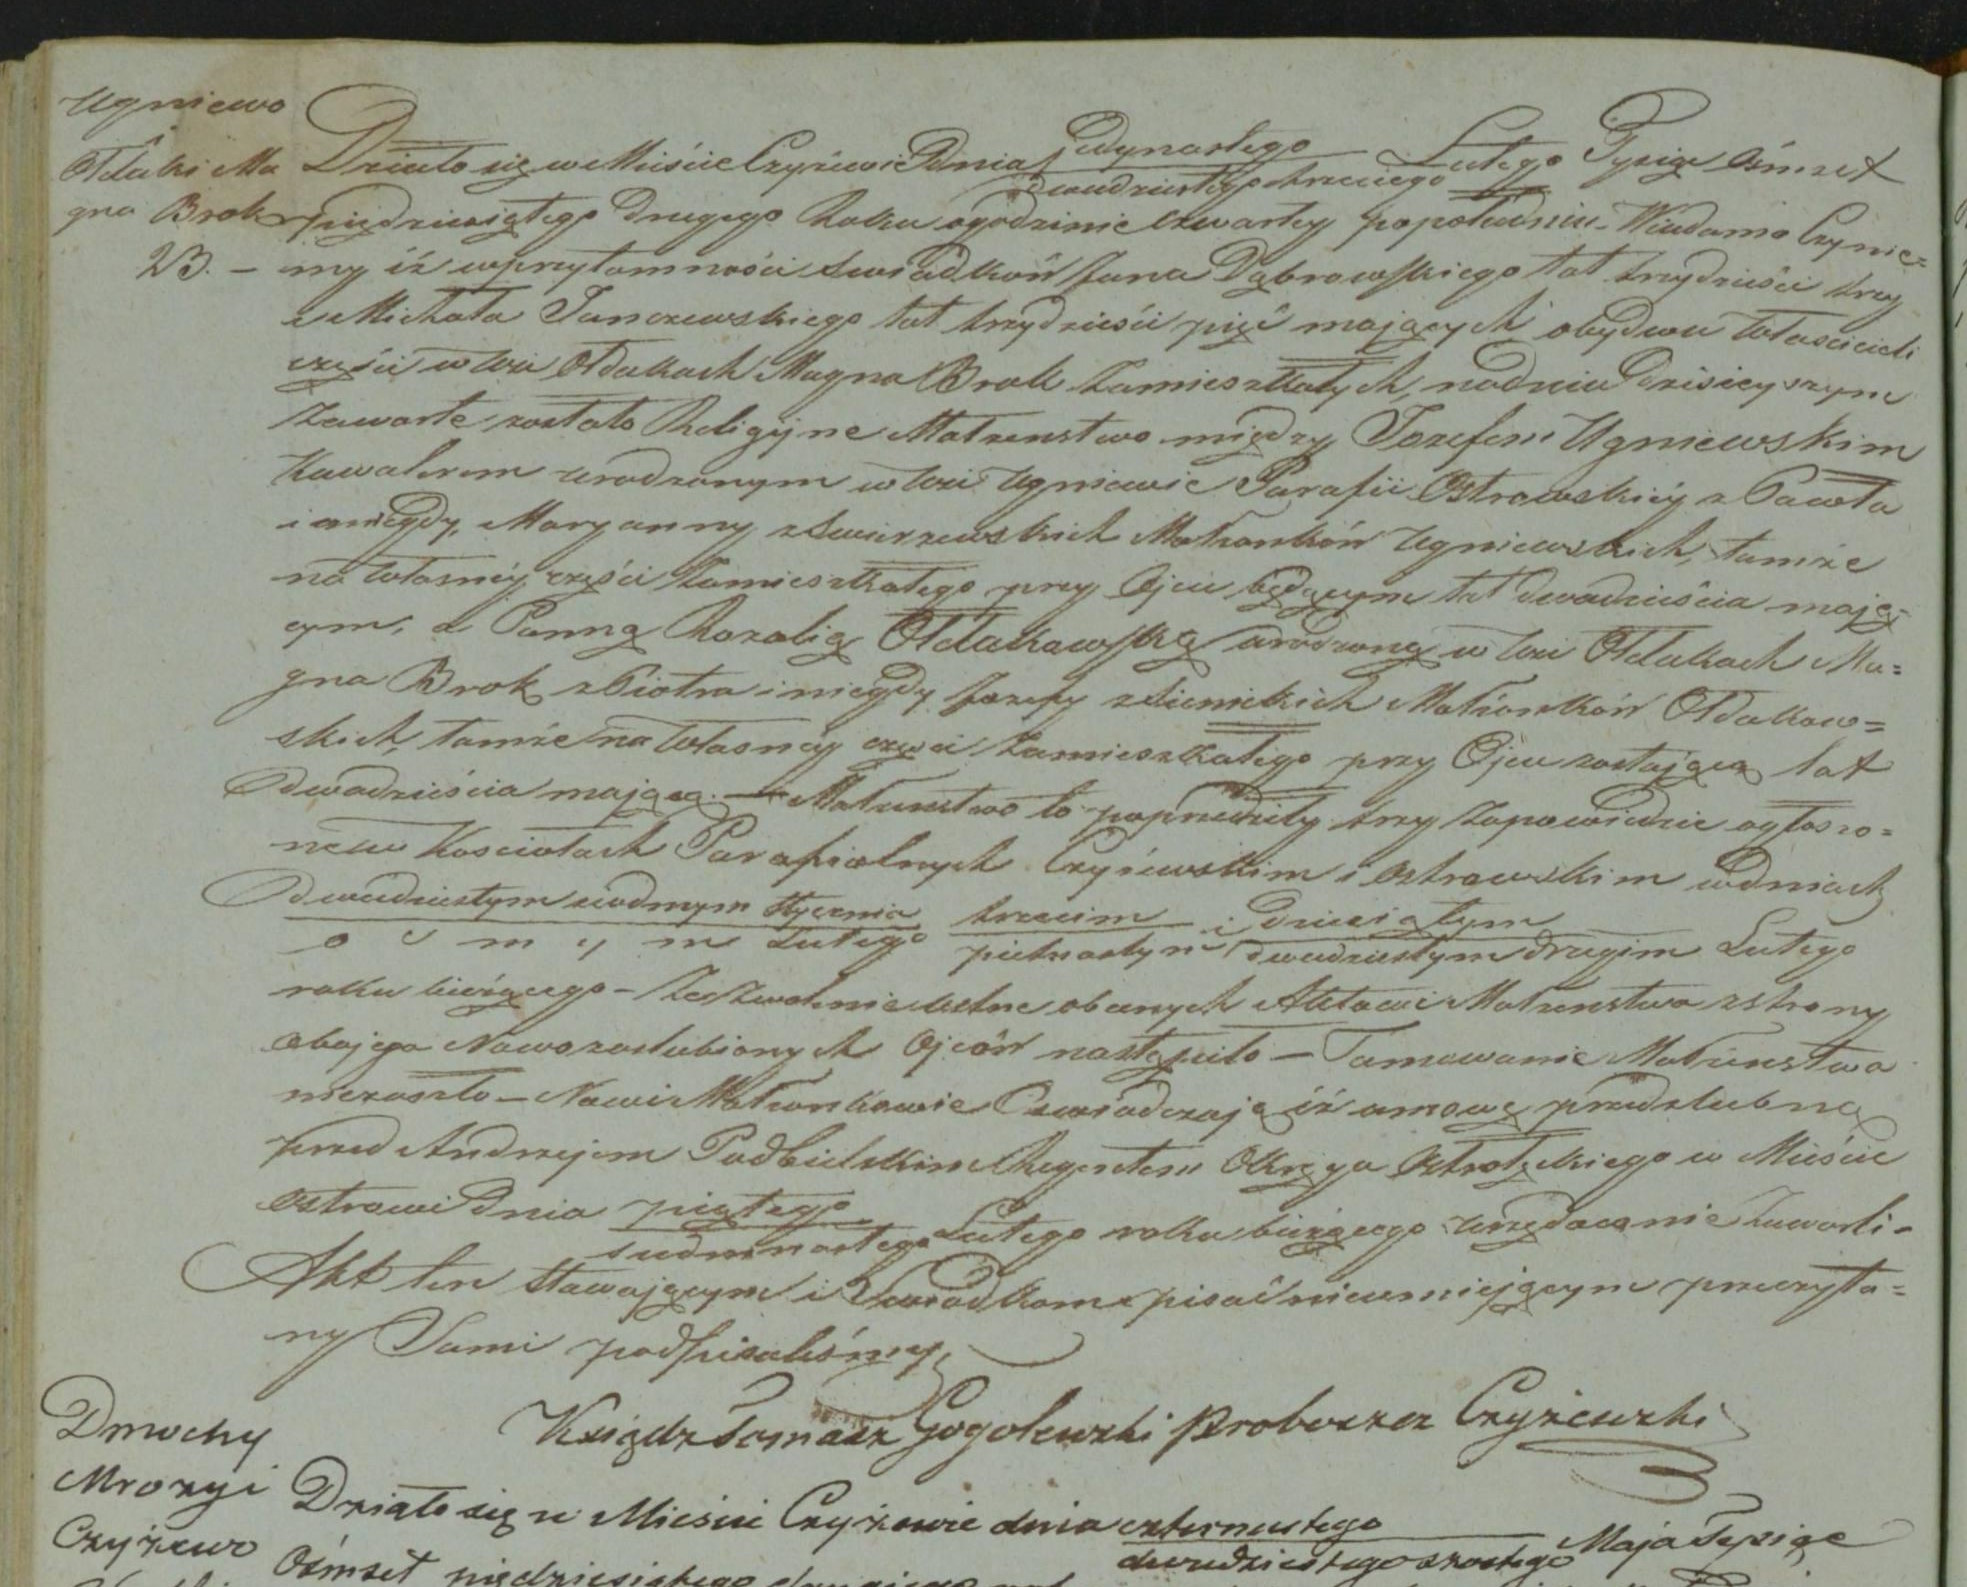 Ugniewo
Ołdaki Ma
gna Brok
23. –
Działo się w Mieście Czyżewie Dnia jedynastego Lutego Tysiąc Ośmset
dwudziestego trzeciego
pięcdziesiątego drugiego Roku o godzinie czwartej popołudniu. Wiadomo Czynie=
my iż w przytomności świadków Jana Dąbrowskiego lat trzydzieści trzy
i Michała Janczewskiego lat trzydzieści pięć mających obydwu właścicieli
części w wsi Ołdakach Magna Brok zamieszkałych, na dniu dzisieyszym
zawarte zostało Religijne Małżenstwo między Jozefem Ugniewskim
Kawalerem urodzonym w wsi Ugniewie Parafii Ostrowskiéy z Pawła
i niegdy Maryanny z Swierzewskich Małżonków Ugniewskich, tamże
na własnéy części zamieszkałego przy Ojcu będącym lat dwadzieścia mają=
cym, a Panną Rozalią Ołdakowską urodzoną w wsi Ołdakach Ma=
gna Brok z Piotra i niegdy Jozefy z Sienickich Małżonków Ołdakow=
skich, tamże na własnéy części zamieszkałego przy Ojcu zostającą lat
dwadzieścia mającą. — Małżenstwo to poprzedziły trzy zapowiedzie ogłoszo=
ne w Kościołach Parafialnych Czyżewskim i Ostrowskim w dniach
dwudziestym siodmym Stycznia trzecim i dziesiątym
osmym Lutego pietnastym dwudziestym drugim Lutego
roku bieżącego – Zezwolenie ustne obecnych Aktowi Małżenstwa z strony
obojega Nowozaslubionych Ojców nastąpiło – Tamowanie Małżenstwa
niezaszło – Nowi Małżonkowie Oswiadczają iż umowę przedslubną
przed Andrzejem Podbielskim Regentem Okręgu Ostrołęckiego w Mieście
Ostrowi Dnia piątego Lutego roku bieżącego urzędownie zawarli –
siedmnastego
Akt ten Stawającym i Swiadkom pisać nieumiejącym przeczyta=
ny Sami podpisaliśmy.
Ksiądz Tomasz Gogolewski Proboszcz Czyżewski
Dmochy
Mrozy i
Czyżewo
Działo się w Mieście Czyżewie dnia czternastego Maja Tysiąc
dwudziestego szóstego
Ośmset pięćdziesiątego